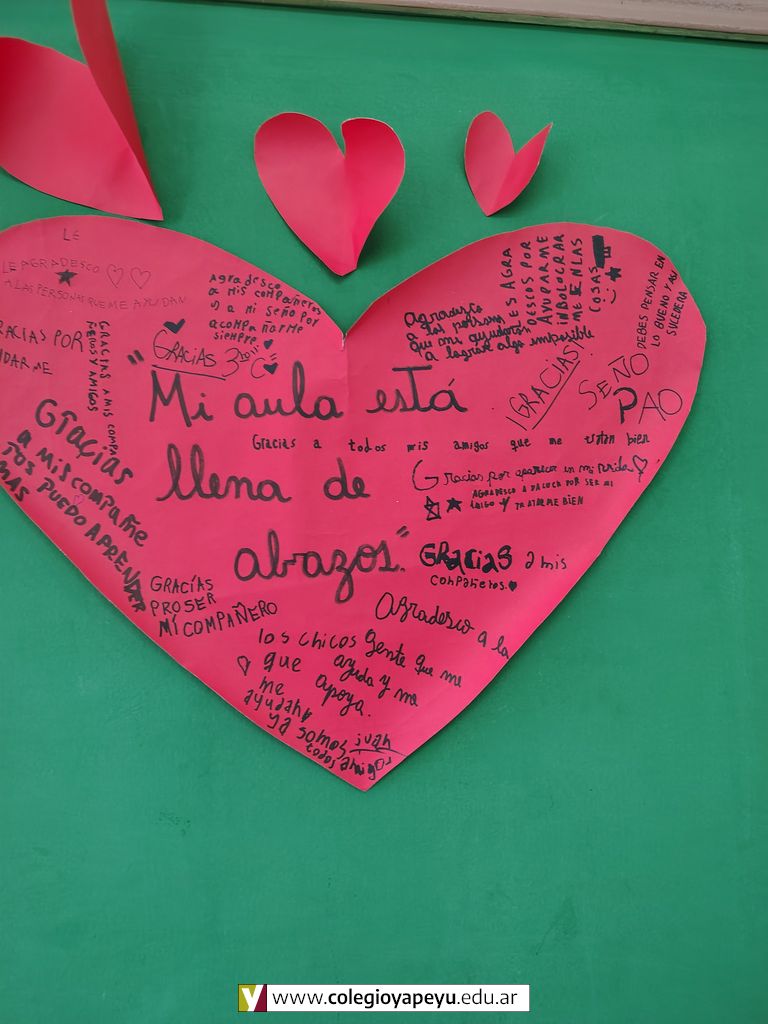 LE
LE AGRADESCO
A LAS PERSONAS QUE ME AYUDAN
GRACIAS POR
GRACIAS A MIS COMPA
ÑEROS Y AMIGOS
Agradesco
a mis compañeros
y a mi seño por
acompañarme
siempre
GRACIAS 3ro C
"Mi aula está
llena de
abrazos".
Agradesco
a las personas
que me ayudaron
a lograr algo imposible
ES AGRA
DESCOS POR
AYUPARME
INBOLOCRAR
ME EN LAS
COSAS
DEBES PENSAR EN
LO BUENO Y ASI
SUCEDERA
¡GRACIAS!
SEÑO
PAO
Gracias a todos mis amigos que me tratan bien
Gracias por aparecer en mi vida
AGRADESCO A POR SER MI
Y TRATARME BIEN
GRACIAS a mis
compañeros
Gracias
a mis compañe
ros puedo APRENDER
MAS
GRACÍAS
PROSER
MÍ COMPAÑERO
Agradesco a la
gente que me
ayuda y me
apoya.
los chicos
que
me
ayudan
ya somos
todos amigos
juan
www.colegioyapeyu.edu.ar